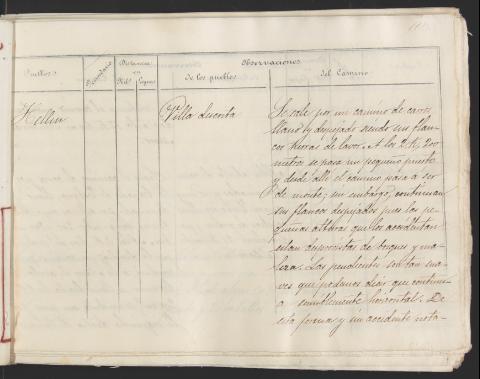 Pueblos
Vecindario
Distancia
en
Kil.s Leguas
Observaciones
De los pueblos
del Camino
Hellin
Villa decenta
Se sale por un camino de carros
llano y despejado siendo sus flan-
cos tierras de labor. A los 2 K, 200
metros se pasa un pequeño puente
y desde allí el camino pasa a ser
de monte; sin embargo, continuan
sus flancos despejados pues las pe-
queñas alturas que los accidentan
estan desprovistas de bosques y ma-
leza. Las pendientes son tan sua-
ves que podemos decir que continu-
a sensiblemente horizontal. De
esta forma y sin accidente nota-